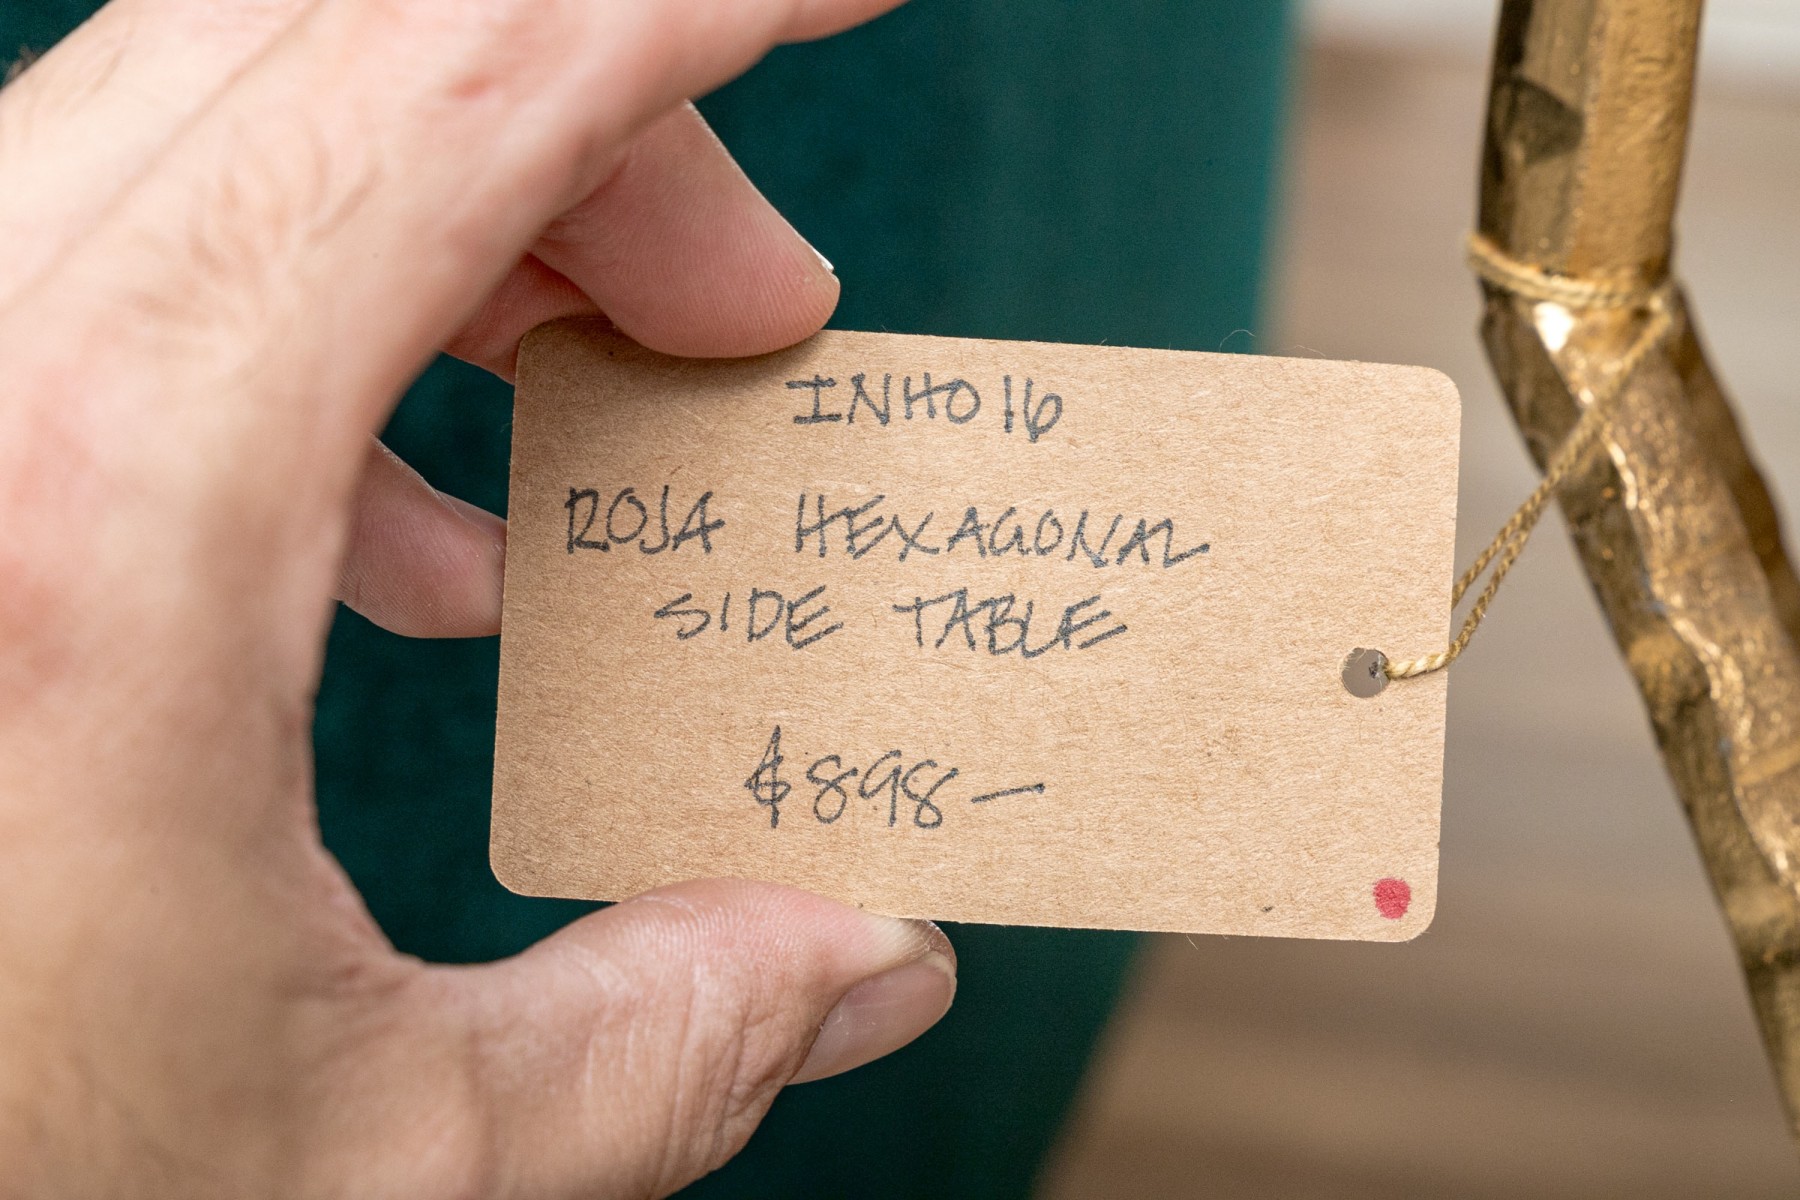 INH016
ROJA HEXAGONAL
SIDE TABLE
$898—